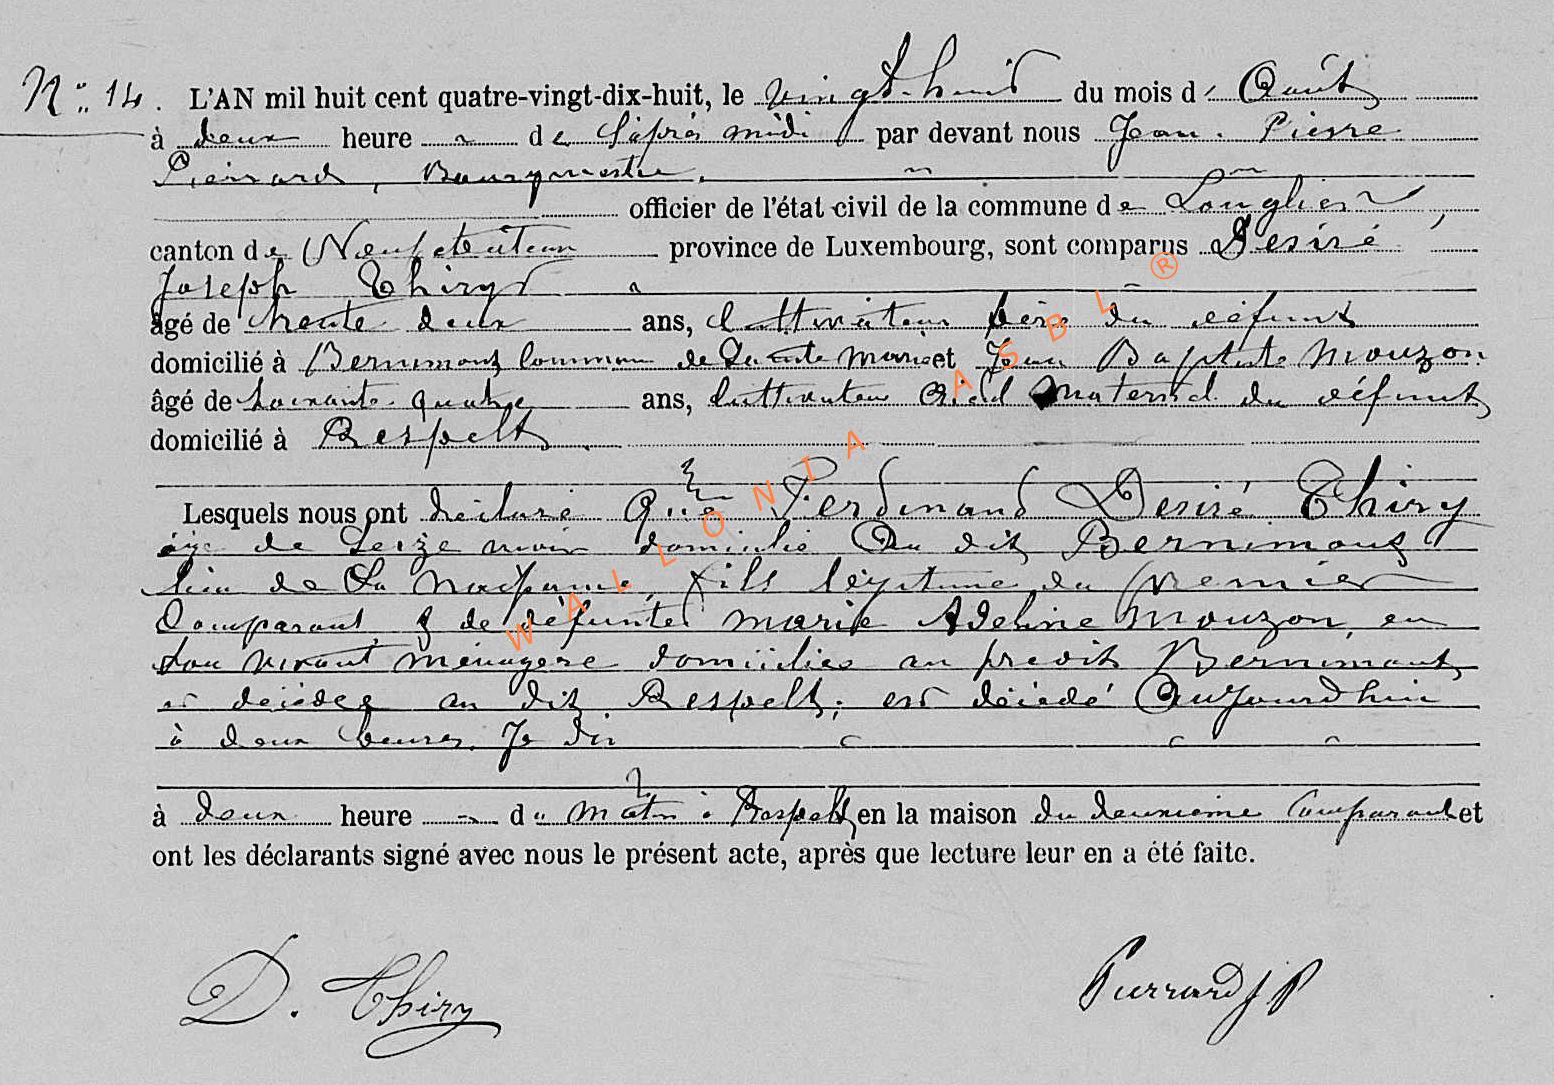 N° 14. L'AN mil huit cent quatre-vingt-dix-huit, le vingt-huit du mois d' Août
à deux heure de l'après midi par devant nous Jean Pierre
Pierrard, Bourgmestre,
officier de l'état civil de la commune de Longlier,
canton de Neufchâteau province de Luxembourg, sont comparus Desiré
Joseph Thiry
âgé de trente deux ans, Cultivateur père du défunt
domicilié à Bernimont Commune de Sainte Marie et Jean Baptiste Mouzon
âgé de soixante quatre ans, Cultivateur aieul maternel du défunt
domicilié à Respelt
Lesquels nous ont déclaré Que Ferdinand Desiré Thiry
âgé de Seize mois domicilié Au dit Bernimont
lieu de Sa naissance, fils légitime du premier
Comparant & de défunte Marie Adeline Mouzon, en
son vivant ménagère domiciliée au predit Bernimont
et décédée au dit Respelt; est décédé Aujourdhui
à deux heures. Je dis
à deux heure du matin à Respelt, en la maison du deuxième Comparant et
ont les déclarants signé avec nous le présent acte, après que lecture leur en a été faite.
D. Thiry Pierrard J P
WALLONIA ASBL ®